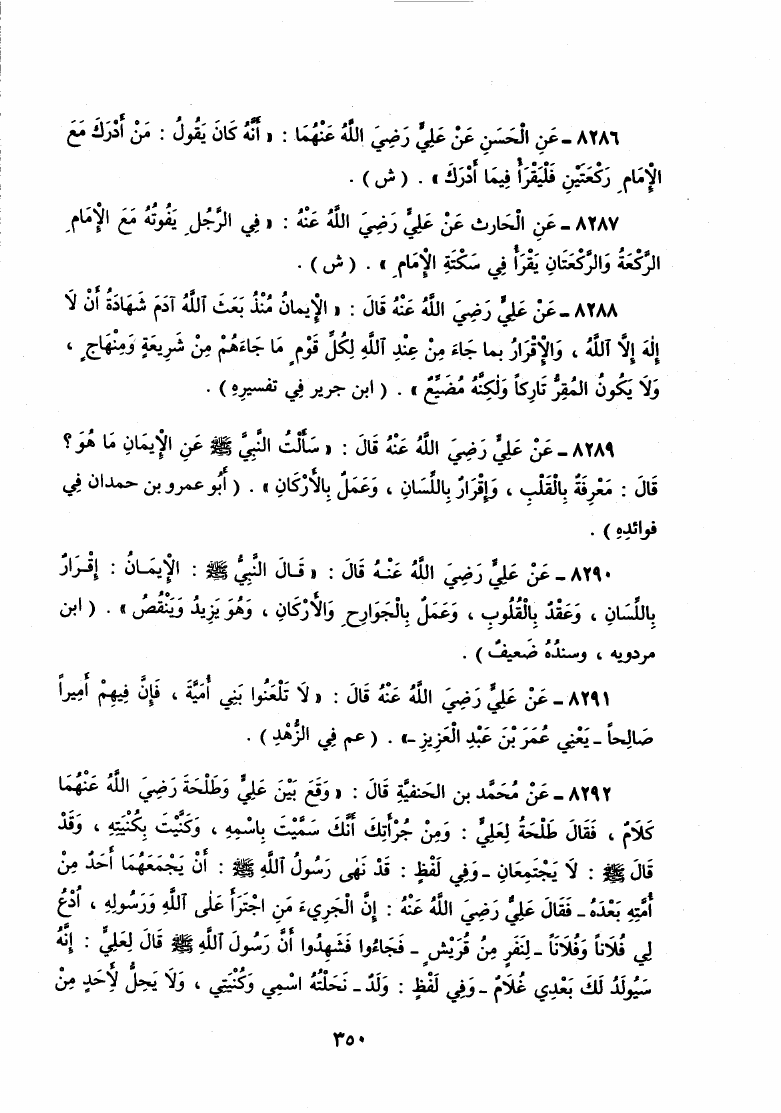 ٨٢٨٦ ـ عَنِ الْحَسَنِ عَنْ عَلِيٍّ رَضِيَ اللَّهُ عَنْهُمَا : « أَنَّهُ كَانَ يَقُولُ : مَنْ أَدْرَكَ مَعَ
الإِمَامِ رَكْعَتَيْنِ فَلْيَقْرَأْ فِيمَا أَدْرَكَ » . ( ش ) .
٨٢٨٧ ـ عَنِ الْحَارِثِ عَنْ عَلِيٍّ رَضِيَ اللَّهُ عَنْهُ : « فِي الرَّجُلِ يَفُوتُهُ مَعَ الإِمَامِ
الرَّكْعَةُ وَالرَّكْعَتَانِ يَقْرَأُ فِي سَكْتَةِ الإِمَامِ » . ( ش ) .
٨٢٨٨ ـ عَنْ عَلِيٍّ رَضِيَ اللَّهُ عَنْهُ قَالَ : « الإِيمَانُ مُنْذُ بَعَثَ آللَّهُ آدَمَ شَهَادَةُ أَنْ لَا
إِلٰهَ إِلَّا آللَّهُ ، وَالإِقْرَارُ بما جَاءَ مِنْ عِنْدِ آللَّهِ لِكُلِّ قَوْمٍ مَا جَاءَهُمْ مِنْ شَرِيعَةٍ وَمِنْهَاجٍ ،
وَلَا يَكُونُ المُقِرُّ تَارِكاً وَلٰكِنَّهُ مُضَيِّعٌ » . ( ابن جرير فِي تفسيرِهِ ) .
٨٢٨٩ ـ عَنْ عَلِيٍّ رَضِيَ اللَّهُ عَنْهُ قَالَ : « سَأَلْتُ النَّبِيَّ ﷺ عَنِ الإِيمَانِ مَا هُوَ ؟
قَالَ : مَعْرِفَةٌ بِالْقَلْبِ ، وَإِقْرَارٌ بِاللِّسَانِ ، وَعَمَلٌ بِالأَرْكَانِ » . ( أَبُو عمرو بن حمدان فِي
فوائدِهِ ) .
٨٢٩٠ ـ عَنْ عَلِيٍّ رَضِيَ اللَّهُ عَنْـهُ قَالَ : « قَـالَ النَّبِيُّ ﷺ : الإِيمَـانُ : إِقْـرَارٌ
بِاللِّسَانِ ، وَعَقْدٌ بِالْقُلُوبِ ، وَعَمَلٌ بِالْجَوَارِحِ وَالأَرْكَانِ ، وَهُوَ يَزِيدُ وَيَنْقُصُ » . ( ابن
مردويه ، وسندُهُ ضَعيفٌ ) .
٨٢٩١ ـ عَنْ عَلِيٍّ رَضِيَ اللَّهُ عَنْهُ قَالَ : « لَا تَلْعَنُوا بَنِي أُمَيَّةَ ، فَإِنَّ فِيهِمْ أَمِيراً
صَالِحاً ـ يَعْنِي عُمَرَ بْنَ عَبْدِ الْعَزِيزِ ـ» . ( عم فِي الزُّهْدِ ) .
٨٢٩٢ ـ عَنْ مُحَمَّد بن الحَنفِيَّةِ قَالَ : « وَقَعَ بَيْنَ عَلِيٍّ وَطَلْحَةَ رَضِيَ اللَّهُ عَنْهُمَا
كَلَامٌ ، فَقَالَ طَلْحَةُ لِعَلِيٍّ : وَمِنْ جُرْأَتِكَ أَنَّكَ سَمَّيْتَ بِاسْمِهِ ، وَكَنَّيْتَ بِكُنْيَتِهِ ، وَقَدْ
قَالَ ﷺ : لَا يَجْتَمِعَانِ ـ وَفِي لَفْظٍ : قَدْ نَهٰى رَسُولُ آللَّهِ ﷺ : أَنْ يَجْمَعَهُمَا أَحَدٌ مِنْ
أُمَّتِهِ بَعْدَهُ ـ فَقَالَ عَلِيٌّ رَضِيَ اللَّهُ عَنْهُ : إِنَّ الْجَرِيءَ مَنِ اجْتَرَأَ عَلٰى آللَّهِ وَرَسُولِهِ ، أُدْعُ
لِي فُلَاناً وَفُلَاناً ـ لِنَفَرٍ مِنْ قُرَيْشٍ ـ فَجَاءُوا فَشَهِدُوا أَنَّ رَسُولَ آللَّهِ ﷺ قَالَ لِعَلِيٍّ : إِنَّهُ
سَيُولَدُ لَكَ بَعْدِي غُلَامٌ ـ وَفِي لَفْظٍ : وَلَدٌ ـ نَحَلْتُهُ اسْمِي وَكُنْيَتِي ، وَلَا يَحِلُّ لِأَحَدٍ مِنْ
٣٥٠